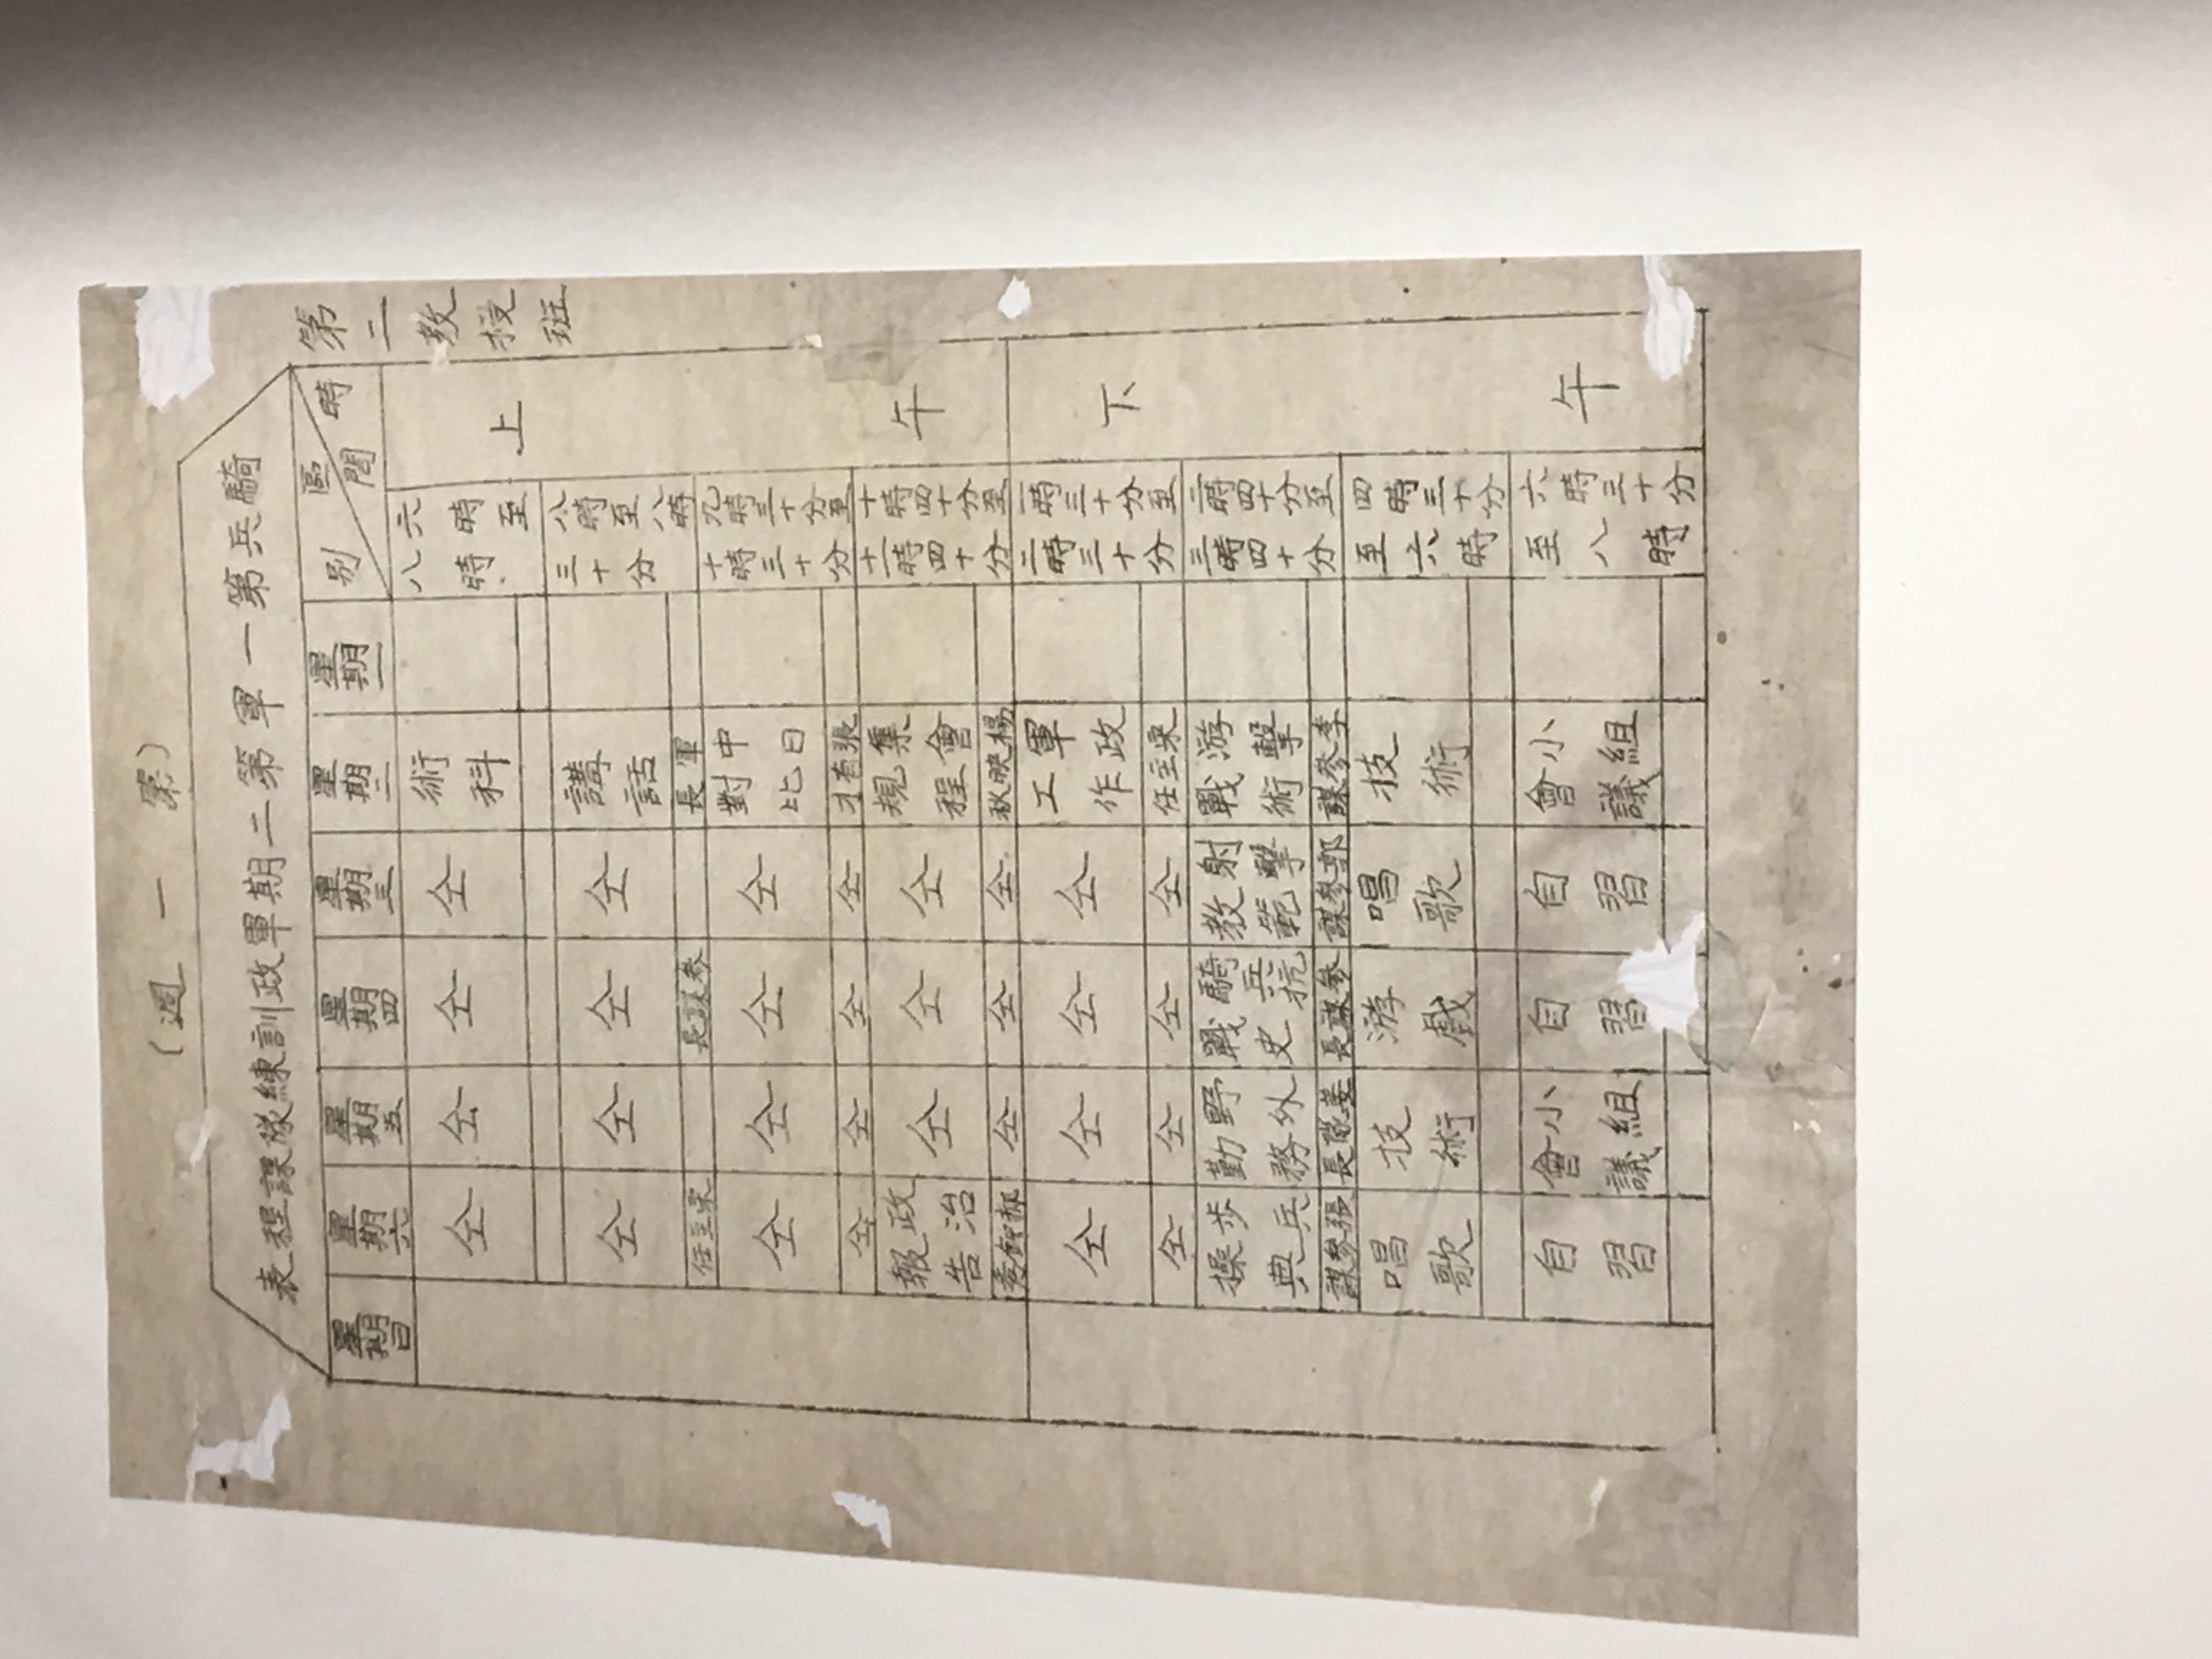 （第一週）
騎兵第一軍第二期軍政訓練隊課程表
第二教授班
時間 區別 星期一 星期二 星期三 星期四 星期五 星期六 星期日
上午
六時至八時 術科 仝 仝 仝 仝
八時至八時三十分 講話 仝 仝 仝 仝
軍長 參謀長 宋主任
九時三十分至十時三十分 中日對比 仝 仝 仝 仝
張有才 仝 仝 仝 仝
十時四十分至十一時四十分 集會規程 仝 仝 仝 政治報告
楊映秋 仝 仝 仝
下午
一時三十分至二時三十分 軍政工作 仝 仝 仝 仝
宋主任 仝 仝 仝 仝
二時四十分至三時四十分 游擊戰術 射擊教範 騎兵抗戰史 野外勤務 步兵操典
李參謀 郭參謀 參謀長 姜隊長 張參謀
四時三十分至六時 技術 唱歌 游戲 技術 唱歌
六時三十分至八時 小組會議 自習 自習 小組會議 自習